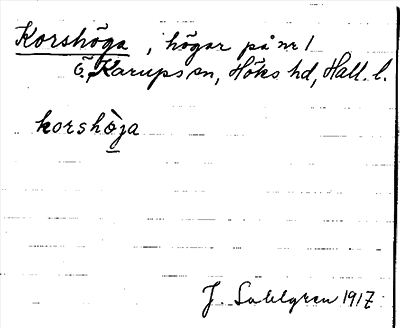 Korshöga, högar på nr 1
Ö. Karups sn, Höks hd, Hall. l.
korshò̱ja
J. Sahlgren 1917